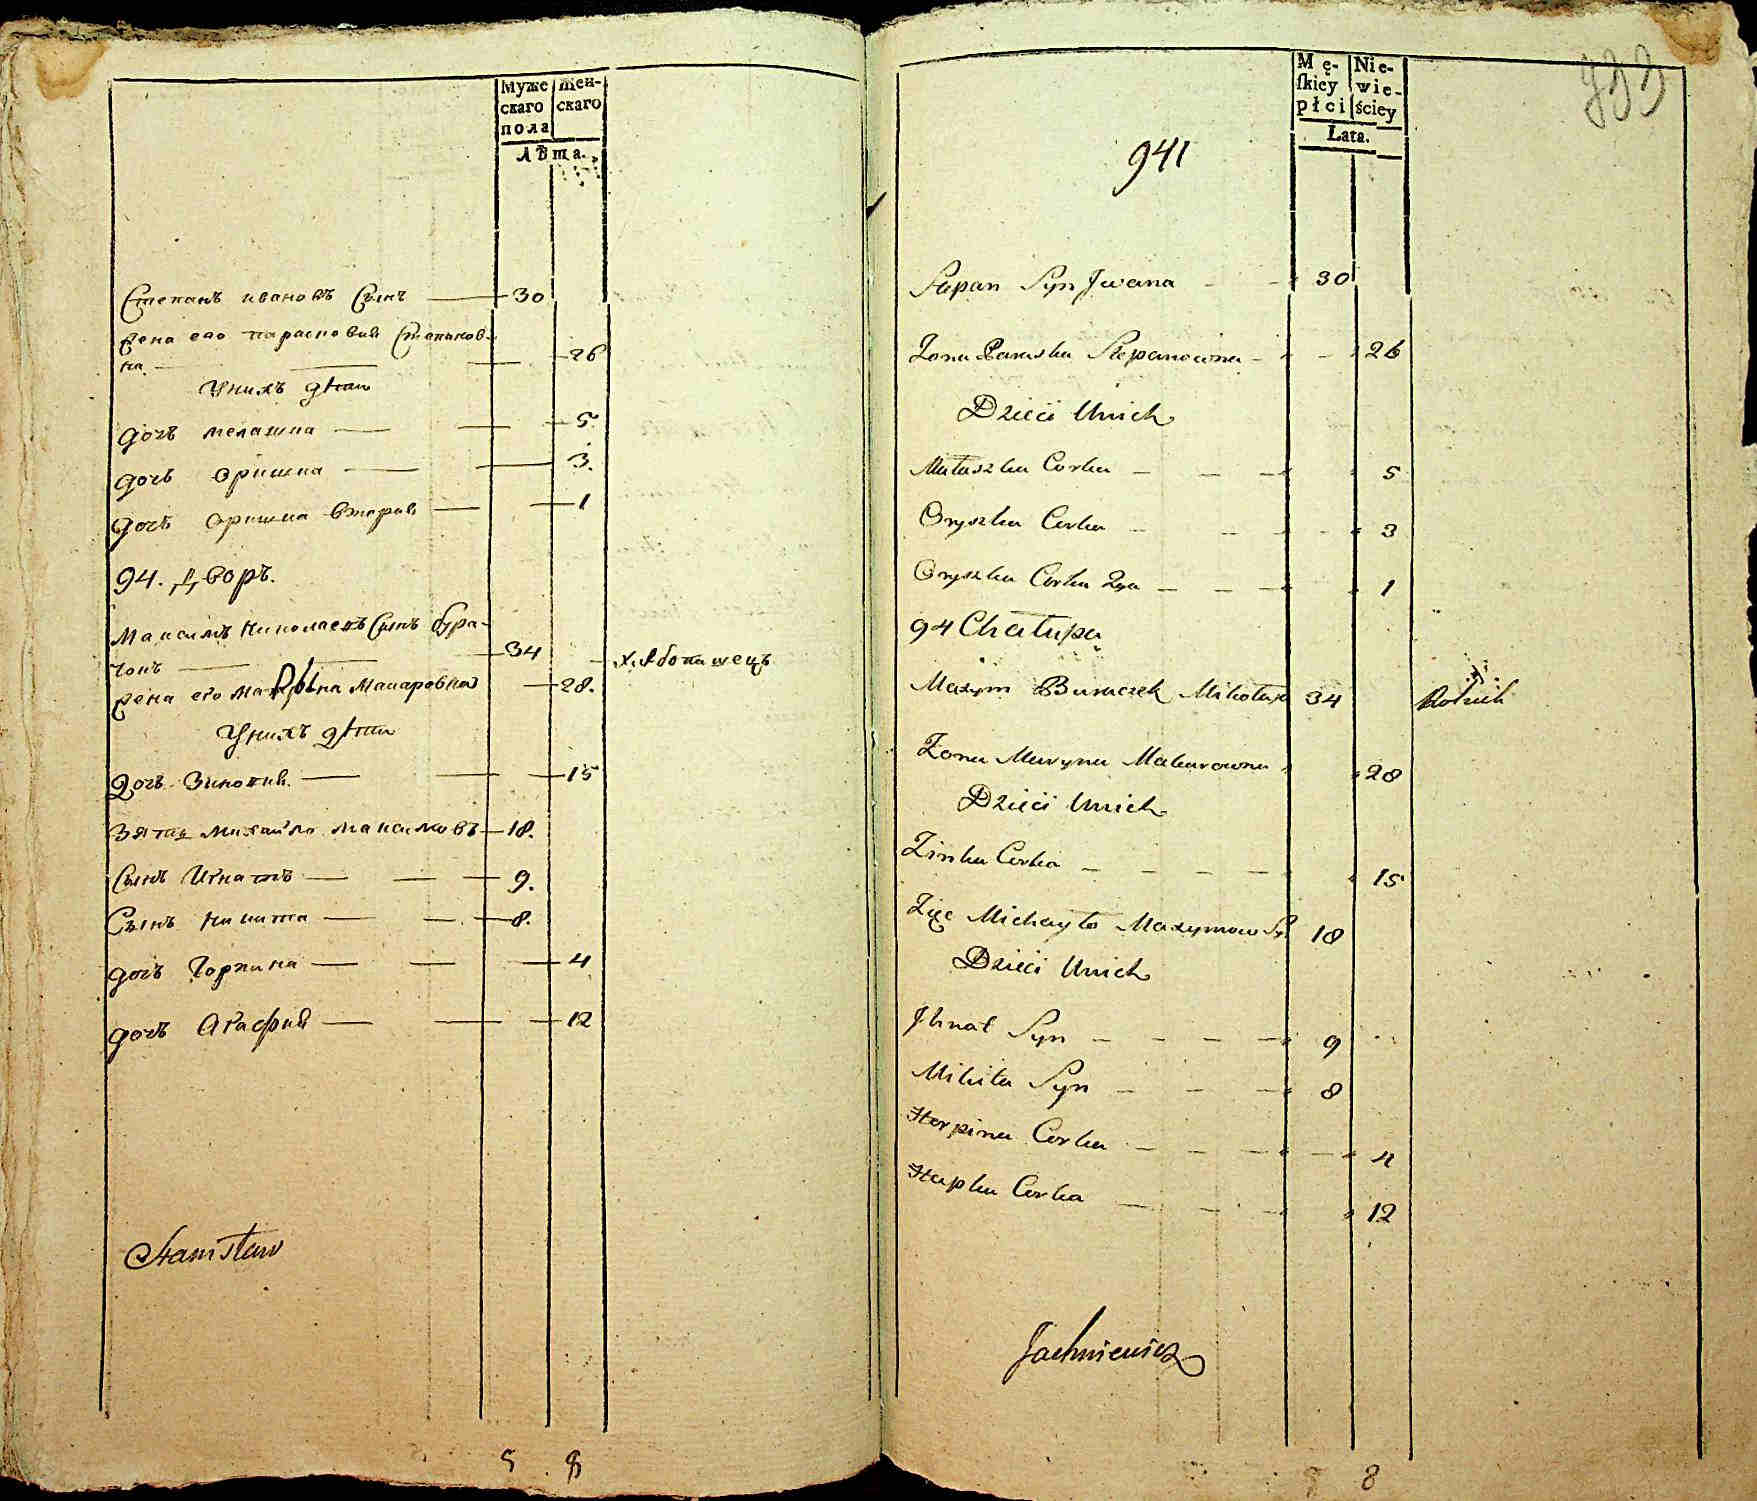 Муже
скаго
пола
Жен-
скаго
Лѣта.
Степанъ ивановъ Сынъ — 30
Жена его парасковия Степанов-
на — 26
У нихъ дѣти
дочь мелашка — 5
дочь Оришка — 3.
дочь Оришка вторая — 1
94. Дворъ.
Максимъ Николаевъ Сынъ бура-
чокъ — 34 хлѣбопашецъ
Жена его Макаровна — 28.
У нихъ дѣти
дочь Зиновия — 15
Зять Михайло Максимовъ — 18.
Сынъ Игнатъ — 9.
Сынъ Никита — 8.
дочь Горпина — 4
дочь Агафия — 12
Stanisław
5 8
Mę-
skiey
płci
Nie-
wie-
ściey
Lata.
941
Stepan Syn Jwana 30
Zona Paraska Stepanowna 26
Dzieci Unich
Małaszka Corka 5
Oryszka Corka 3
Oryszka Corka 2ga 1
94 Chałupa
Maxym Buraczek Mikołaja 34 Rolnik
Zona Maryna Makarowna 28
Dzieci Unich
Zinka Corka 15
Zięc Michayło Maxymow Sy 18
Dzieci Unich
Jhnat Syn 9
Mikita Syn 8
Horpina Corka 4
Hapka Corka 12
Jachniewicz
8